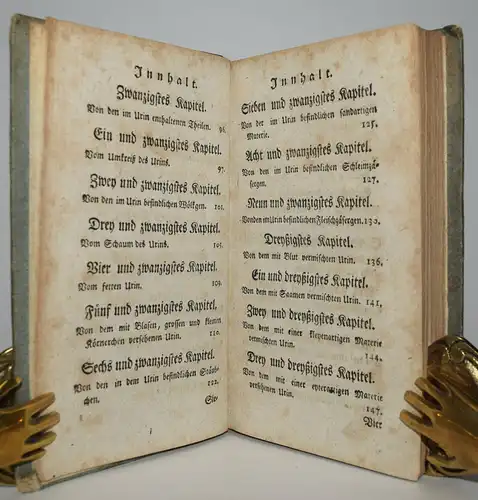 Innhalt.
Zwanzigstes Kapitel.
Von den im Urin enthaltenen Theilen. 96.
Ein und zwanzigstes Kapitel.
Vom Umkreiß des Urins. 97.
Zwey und zwanzigstes Kapitel.
Von den im Urin befindlichen Wölkgen. 101.
Drey und zwanzigstes Kapitel.
Vom Schaum des Urins. 105.
Vier und zwanzigstes Kapitel.
Vom fetten Urin. 109.
Fünf und zwanzigstes Kapitel.
Von dem mit Blasen, grossen und kleinen
Körnerchen versehenen Urin. 110.
Sechs und zwanzigstes Kapitel.
Von den in dem Urin befindlichen Stäub-
chen. 122.
Sie-
Innhalt.
Sieben und zwanzigstes Kapitel.
Von der im Urin befindlichen sandartigen
Materie. 125.
Acht und zwanzigstes Kapitel.
Von den im Urin befindlichen Schleimzä-
sergen. 127.
Neun und zwanzigstes Kapitel.
Von den im Urin befindlichen Fleischzäsergen. 130.
Dreyßigstes Kapitel.
Von dem mit Blut vermischten Urin. 136.
Ein und dreyßigstes Kapitel.
Von dem mit Saamen vermischten Urin. 141.
Zwey und dreyßigstes Kapitel.
Von dem mit einer kleyenartigen Materie
vermischten Urin. 144.
Drey und dreyßigstes Kapitel.
Von dem mit einer eyterartigen Materie
versehenen Urin. 147.
Vier